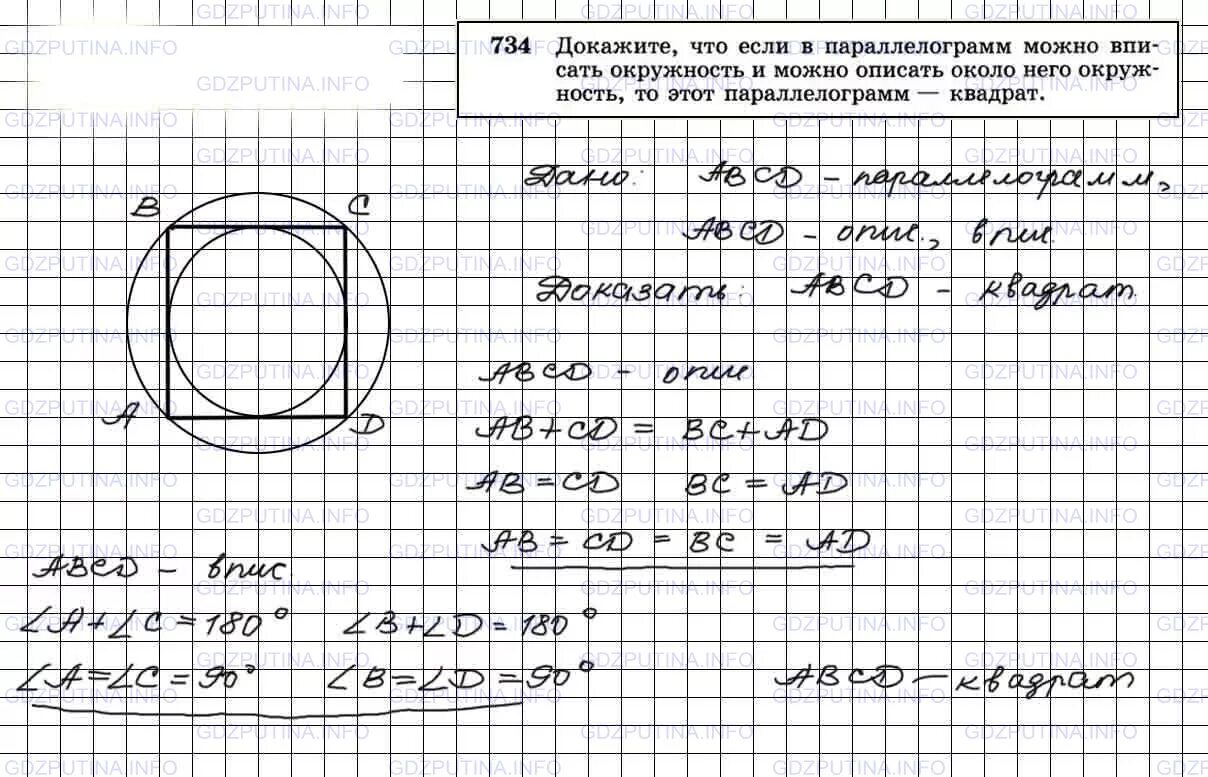 734 Докажите, что если в параллелограмм можно впи-
сать окружность и можно описать около него окруж-
ность, то этот параллелограмм — квадрат.
Дано: ABCD – параллелограмм,
ABCD – опис., впис.
Доказать: ABCD – квадрат.
B C
A D
ABCD – опис
AB+CD = BC+AD
AB = CD BC = AD
AB = CD = BC = AD
ABCD – впис.
∠A+∠C=180° ∠B+∠D=180°
∠A=∠C=90° ∠B=∠D=90° ABCD – квадрат
GDZPUTINA.INFO